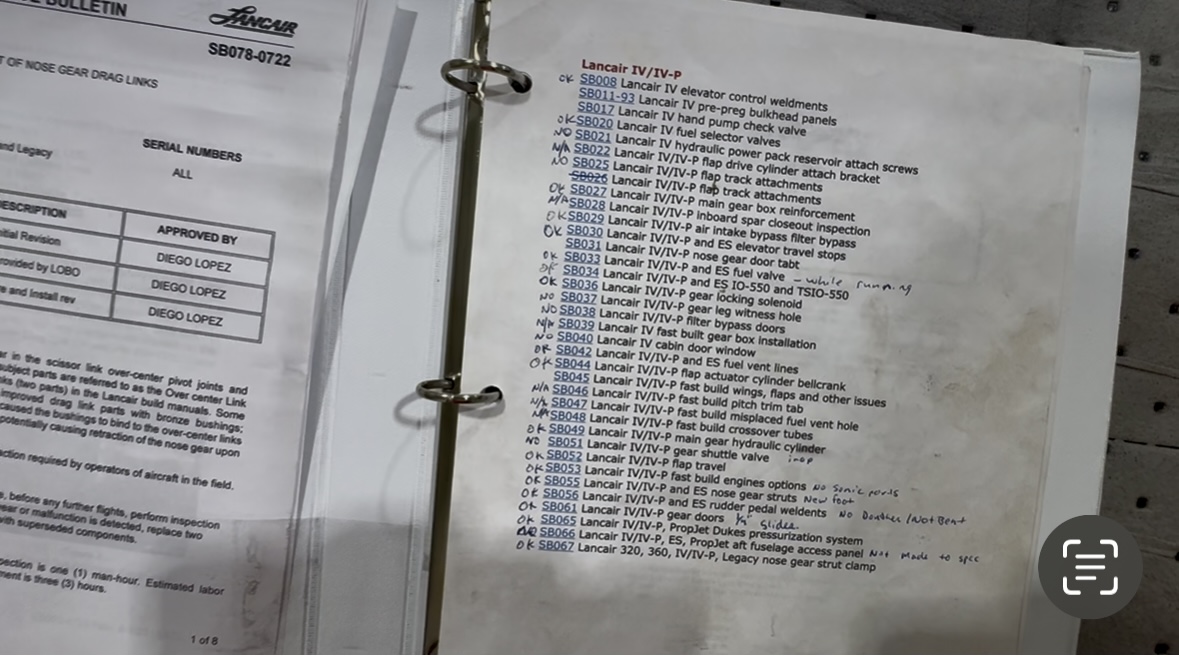 BULLETIN
LANCAIR
SB078-0722
T OF NOSE GEAR DRAG LINKS
SERIAL NUMBERS
and Legacy
ALL
DESCRIPTION APPROVED BY
Initial Revision DIEGO LOPEZ
rovided by LOBO DIEGO LOPEZ
e and Install rev DIEGO LOPEZ
ar in the scissor link over-center pivot joints and
subject parts are referred to as the Over center Link
nks (two parts) in the Lancair build manuals. Some
improved drag link parts with bronze bushings;
caused the bushings to bind to the over-center links
potentially causing retraction of the nose gear upon
action required by operators of aircraft in the field.
s, before any further flights, perform inspection
ear or malfunction is detected, replace two
with superseded components.
pection is one (1) man-hour. Estimated labor
ment is three (3) hours.
1 of 8
Lancair IV/IV-P
OK SB008 Lancair IV elevator control weldments
SB011-93 Lancair IV pre-preg bulkhead panels
SB017 Lancair IV hand pump check valve
OK SB020 Lancair IV fuel selector valves
NO SB021 Lancair IV hydraulic power pack reservoir attach screws
N/A SB022 Lancair IV/IV-P flap drive cylinder attach bracket
NO SB025 Lancair IV/IV-P flap track attachments
SB026 Lancair IV/IV-P flap track attachments
OK SB027 Lancair IV/IV-P main gear box reinforcement
N/A SB028 Lancair IV/IV-P inboard spar closeout inspection
OK SB029 Lancair IV/IV-P air intake bypass filter bypass
OK SB030 Lancair IV/IV-P and ES elevator travel stops
SB031 Lancair IV/IV-P nose gear door tabt
OK SB033 Lancair IV/IV-P and ES fuel valve - while running
OK SB034 Lancair IV/IV-P and ES IO-550 and TSIO-550
OK SB036 Lancair IV/IV-P gear locking solenoid
NO SB037 Lancair IV/IV-P gear leg witness hole
NO SB038 Lancair IV/IV-P filter bypass doors
N/A SB039 Lancair IV fast built gear box installation
NO SB040 Lancair IV cabin door window
OK SB042 Lancair IV/IV-P and ES fuel vent lines
OK SB044 Lancair IV/IV-P flap actuator cylinder bellcrank
SB045 Lancair IV/IV-P fast build wings, flaps and other issues
N/A SB046 Lancair IV/IV-P fast build pitch trim tab
N/A SB047 Lancair IV/IV-P fast build misplaced fuel vent hole
N/A SB048 Lancair IV/IV-P fast build crossover tubes
OK SB049 Lancair IV/IV-P main gear hydraulic cylinder
NO SB051 Lancair IV/IV-P gear shuttle valve inop
OK SB052 Lancair IV/IV-P flap travel
OK SB053 Lancair IV/IV-P fast build engines options No sonic ports
OK SB055 Lancair IV/IV-P and ES nose gear struts New foot
OK SB056 Lancair IV/IV-P and ES rudder pedal weldents No Doubler/Not Bent
OK SB061 Lancair IV/IV-P gear doors slider
OK SB065 Lancair IV/IV-P, PropJet Dukes pressurization system
SB066 Lancair IV/IV-P, ES, PropJet aft fuselage access panel Not made to spec
OK SB067 Lancair 320, 360, IV/IV-P, Legacy nose gear strut clamp